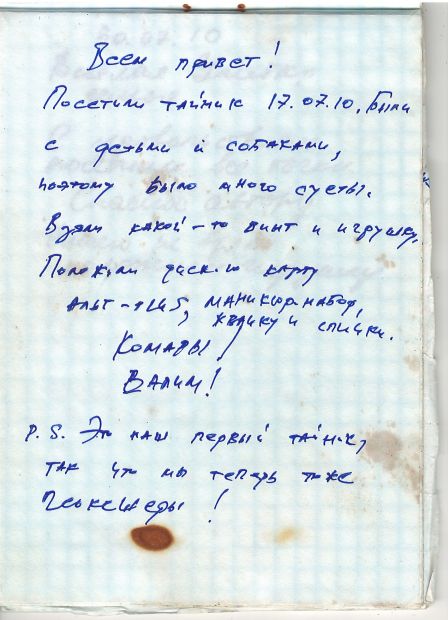 Всем привет!
Посетили тайник 17.07.10, Были
с детьми и собаками,
поэтому было много суеты.
Взяли какой-то винт и игрушку,
Положили диск-ю карту
маникюр-набор,
жвайку и спички.
Комары!
Валим!
P.S. Это наш первый тайник,
так что мы теперь тоже
Геокешеры!